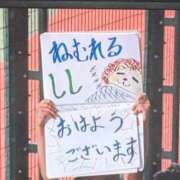 ねむれる
しし
おはよう
ございます